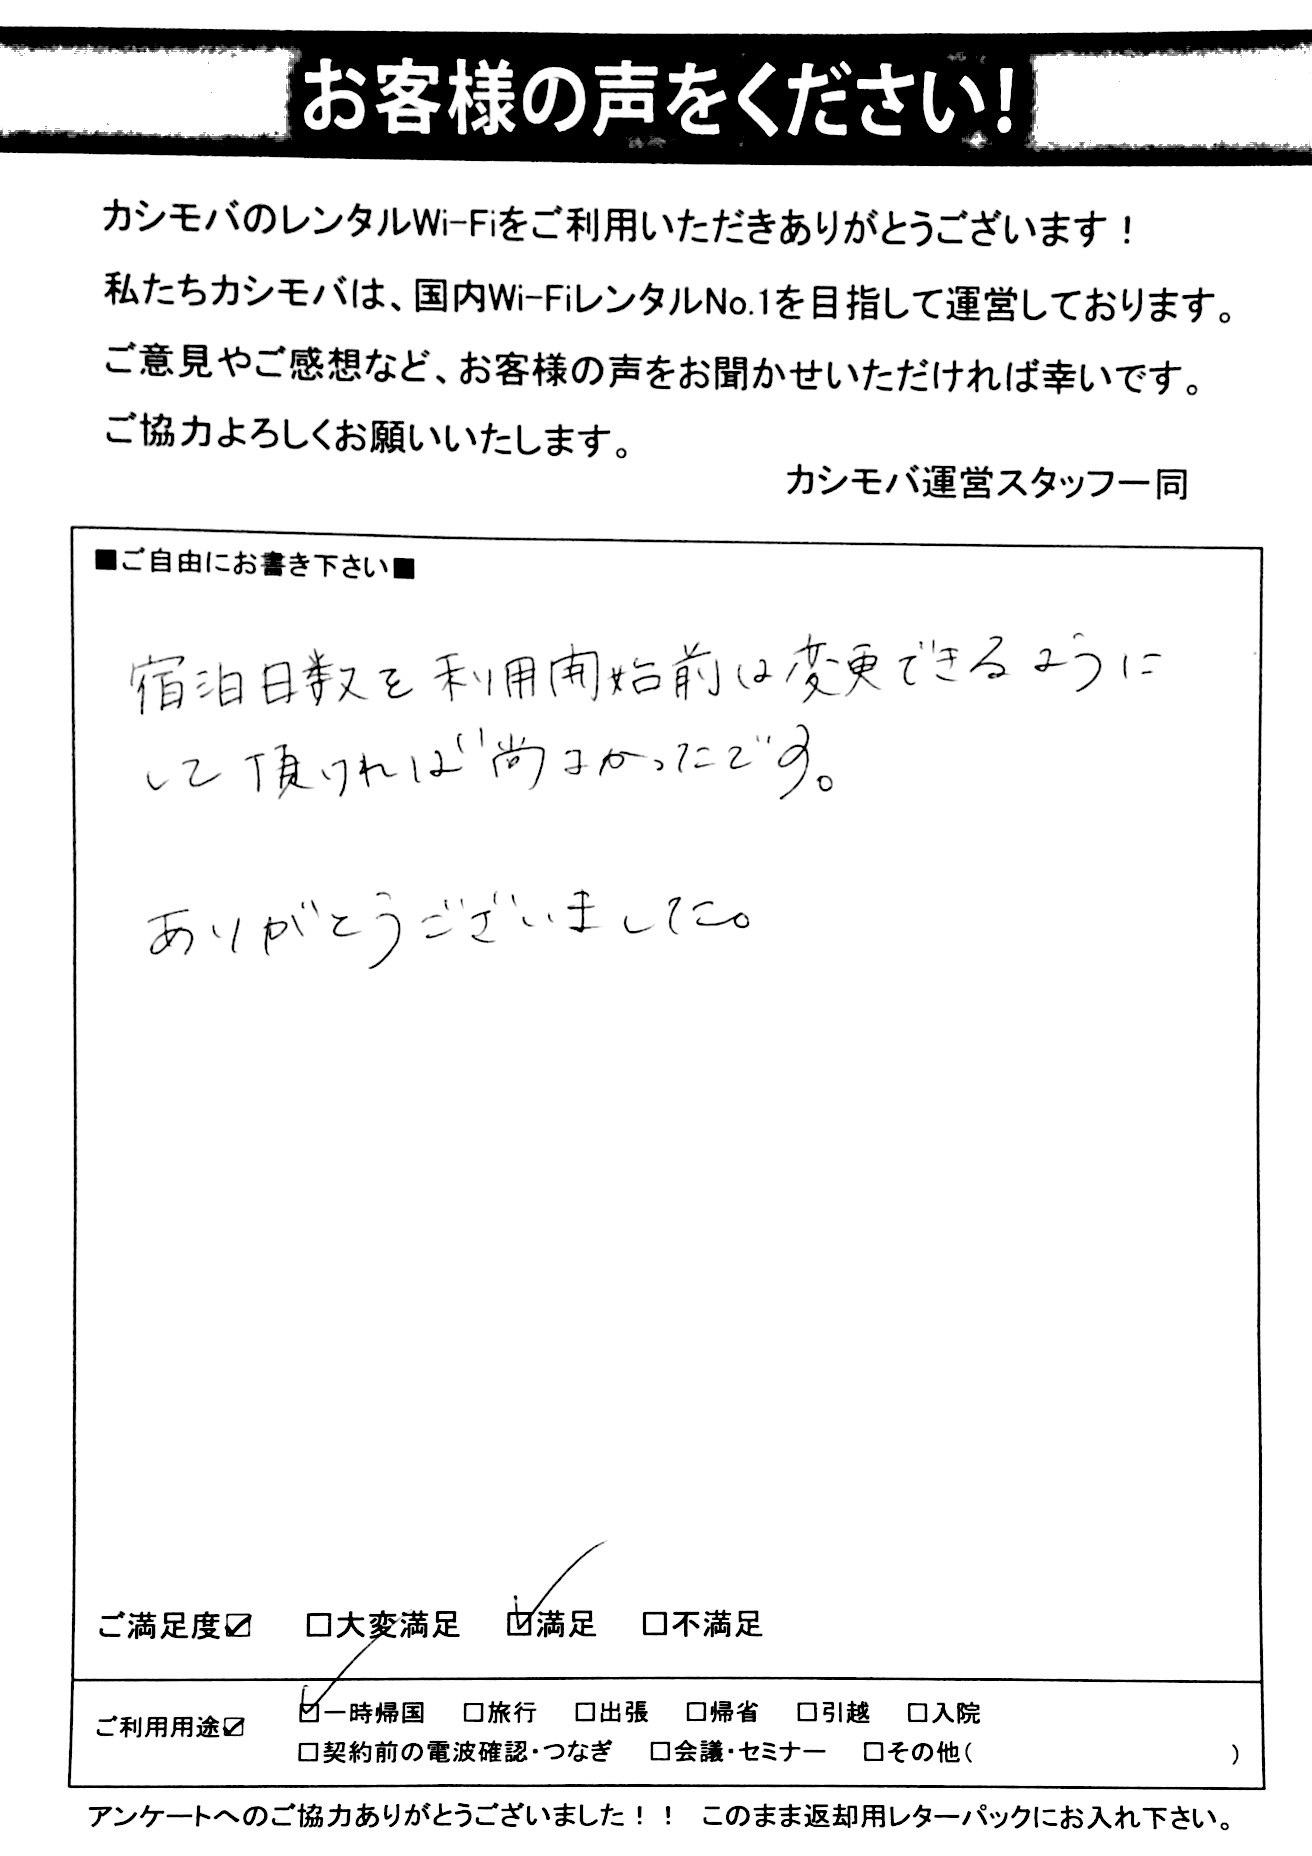 お客様の声をください!
カシモバのレンタルWi-Fiをご利用いただきありがとうございます！
私たちカシモバは、国内Wi-FiレンタルNo.1を目指して運営しております。
ご意見やご感想など、お客様の声をお聞かせいただければ幸いです。
ご協力よろしくお願いいたします。
カシモバ運営スタッフ一同
■ご自由にお書き下さい■
宿泊日数を利用開始前は変更できるように
して頂ければ尚よかったです。
ありがとうございました。
ご満足度☑ □大変満足 ☑満足 □不満足
ご利用用途☑ ☑一時帰国 □旅行 □出張 □帰省 □引越 □入院
□契約前の電波確認・つなぎ □会議・セミナー □その他( )
アンケートへのご協力ありがとうございました！！ このまま返却用レターパックにお入れ下さい。